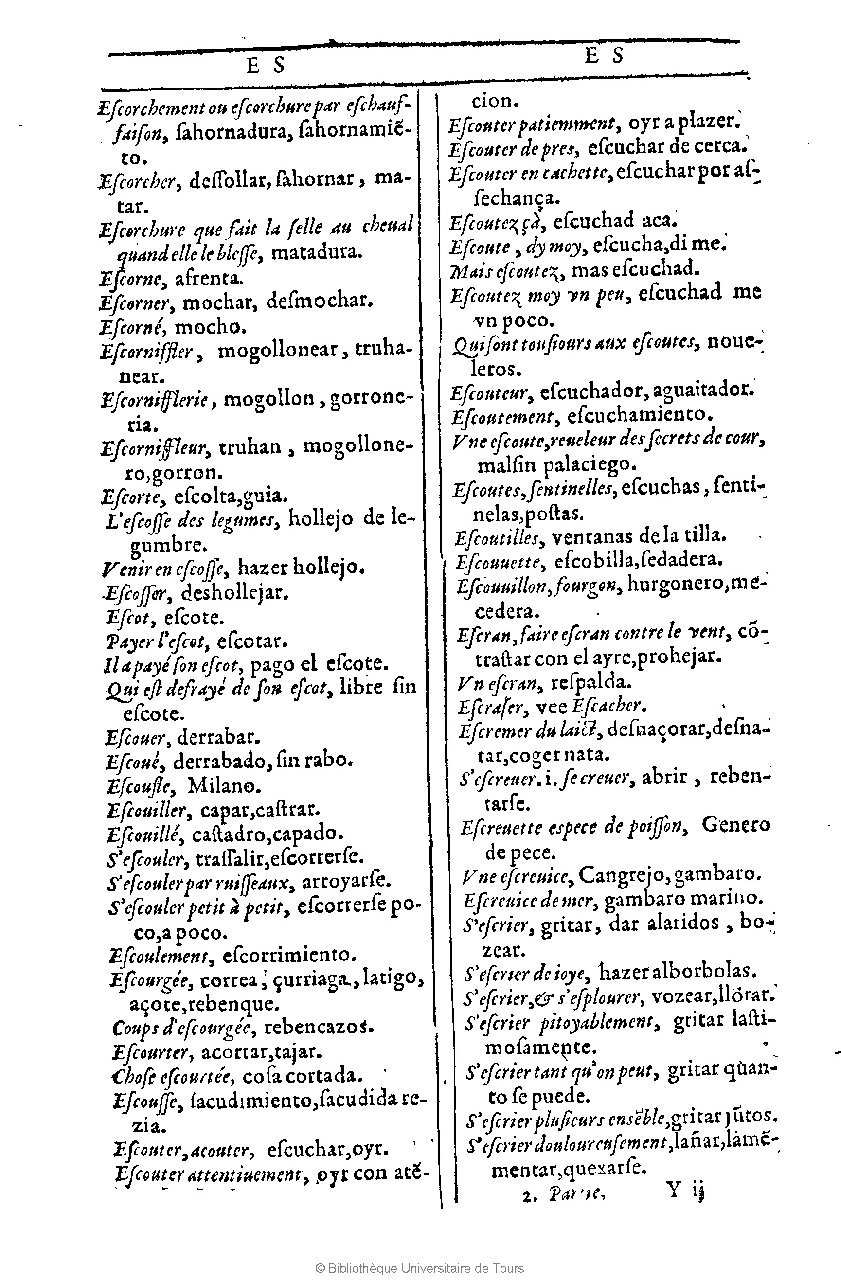 E S
Eſcorchement ou eſcorchure par eſchauf-
faiſon, ſahornadura, ſahornamiẽ-
to.
Eſcorcher, deſſollar, ſahornar, ma-
tar.
Eſcorchure que fait la ſelle au cheual
quand elle le bleſſe, matadura.
Eſcorne, afrenta.
Eſcorner, mochar, deſmochar.
Eſcorné, mocho.
Eſcorniffler, mogollonear, truha-
near.
Eſcornifflerie, mogollon, gorrone-
ria.
Eſcorniffleur, truhan, mogollone-
ro, gorron.
Eſcorte, eſcolta, guia.
L'eſcoſſe des legumes, hollejo de le-
gumbre.
Venir en eſcoſſe, hazer hollejo.
Eſcoſſer, deshollejar.
Eſcot, eſcote.
Payer l'eſcot, eſcotar.
Il a payé ſon eſcot, pago el eſcote.
Qui eſt defrayé de ſon eſcot, libre ſin
eſcote.
Eſcouer, derrabar.
Eſcoué, derrabado, ſin rabo.
Eſcoufle, Milano.
Eſcouiller, capar, caſtrar.
Eſcouillé, caſtadro, capado.
S'eſcouler, traſſalir, eſcorrerſe.
S'eſcouler par ruiſſeaux, arroyarſe.
S'eſcouler petit à petit, eſcorrerſe po-
co, a poco.
Eſcoulement, eſcorrimiento.
Eſcourgée, correa, çurriaga, latigo,
açote, rebenque.
Coups d'eſcourgée, rebencazos.
Eſcourter, acortar, tajar.
Choſe eſcourtée, coſa cortada.
Eſcouſſe, ſacudimiento, ſacudida re-
zia.
Eſcouter, acouter, eſcuchar, oyr.
Eſcouter attentiuement, oyr con atẽ-
E S
cion.
Eſcouter patiemment, oyr a plazer.
Eſcouter de pres, eſcuchar de cerca.
Eſcouter en cachette, eſcuchar por aſ-
ſechança.
Eſcoutez çà, eſcuchad aca.
Eſcoute, dy moy, eſcucha, di me.
Mais eſcoutez, mas eſcuchad.
Eſcoutez moy vn peu, eſcuchad me
vn poco.
Qui ſont touſiours aux eſcoutes, noue-
leros.
Eſcouteur, eſcuchador, aguaitador.
Eſcoutement, eſcuchamiento.
Vne eſcoute, reueleur des ſecrets de cour,
malſin palaciego.
Eſcoutes, ſentinelles, eſcuchas, ſenti-
nelas, poſtas.
Eſcoutilles, ventanas de la tilla.
Eſcouuette, eſcobilla, ſedadera.
Eſcouuillon, fourgon, hurgonero, me-
cedera.
Eſcran, faire eſcran contre le vent, cõ-
traſtar con el ayre, prohejar.
Vn eſcran, reſpalda.
Eſcraſer, vee Eſcacher.
Eſcremer du laict, deſnaçorar, deſna-
tar, coger nata.
S'eſcreuer. i. ſe creuer, abrir, reben-
tarſe.
Eſcreuette eſpece de poiſſon, Genero
de pece.
Vne eſcreuice, Cangrejo, gambaro.
Eſcreuice de mer, gambaro marino.
S'eſcrier, gritar, dar alaridos, bo-
zear.
S'eſcrier de ioye, hazer alborbolas.
S'eſcrier, & s'eſplourer, vozear, llorar.
S'eſcrier pitoyablement, gritar laſti-
moſamente.
S'eſcrier tant qu'on peut, gritar quan-
to ſe puede.
S'eſcrier pluſieurs enſẽble, gritar jũtos.
S'eſcrier douloureuſement, lañar, lamẽ-
mentar, quexarſe.
2. Partie, Y ij
© Bibliothèque Universitaire de Tours